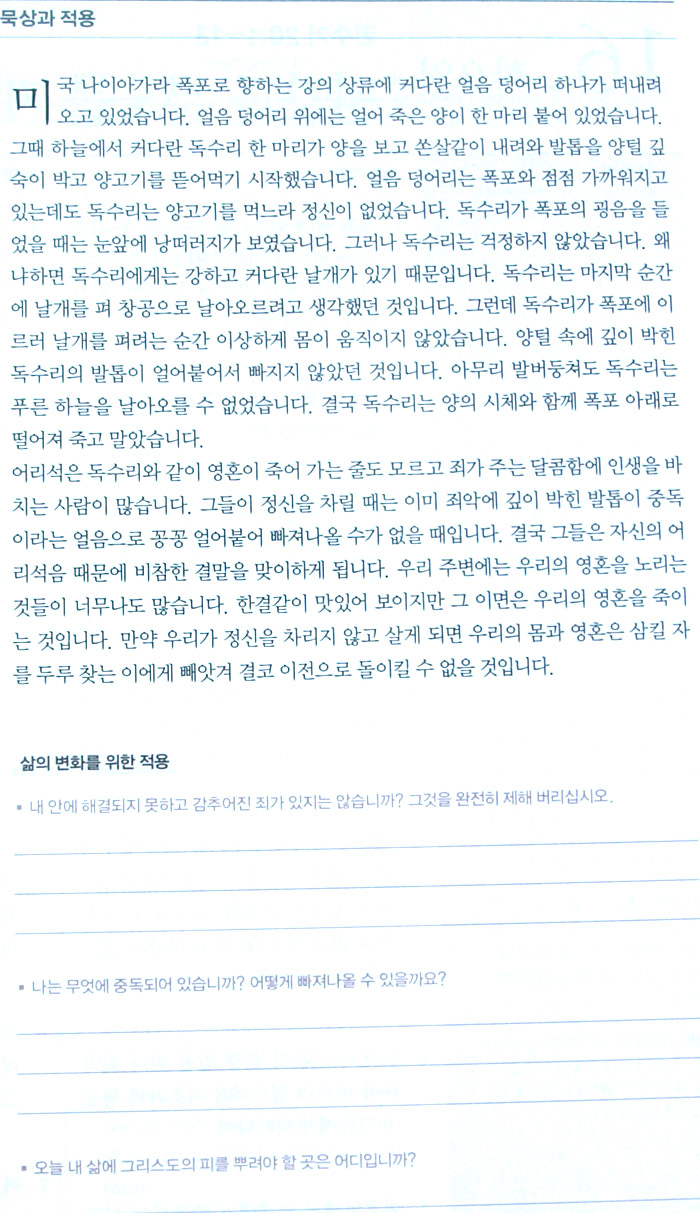 묵상과 적용
미국 나이아가라 폭포로 향하는 강의 상류에 커다란 얼음 덩어리 하나가 떠내려
오고 있었습니다. 얼음 덩어리 위에는 얼어 죽은 양이 한 마리 붙어 있었습니다.
그때 하늘에서 커다란 독수리 한 마리가 양을 보고 쏜살같이 내려와 발톱을 양털 깊
숙이 박고 양고기를 뜯어먹기 시작했습니다. 얼음 덩어리는 폭포와 점점 가까워지고
있는데도 독수리는 양고기를 먹느라 정신이 없었습니다. 독수리가 폭포의 굉음을 들
었을 때는 눈앞에 낭떠러지가 보였습니다. 그러나 독수리는 걱정하지 않았습니다. 왜
냐하면 독수리에게는 강하고 커다란 날개가 있기 때문입니다. 독수리는 마지막 순간
에 날개를 펴 창공으로 날아오르려고 생각했던 것입니다. 그런데 독수리가 폭포에 이
르러 날개를 펴려는 순간 이상하게 몸이 움직이지 않았습니다. 양털 속에 깊이 박힌
독수리의 발톱이 얼어붙어서 빠지지 않았던 것입니다. 아무리 발버둥쳐도 독수리는
푸른 하늘을 날아오를 수 없었습니다. 결국 독수리는 양의 시체와 함께 폭포 아래로
떨어져 죽고 말았습니다.
어리석은 독수리와 같이 영혼이 죽어 가는 줄도 모르고 죄가 주는 달콤함에 인생을 바
치는 사람이 많습니다. 그들이 정신을 차릴 때는 이미 죄악에 깊이 박힌 발톱이 중독
이라는 얼음으로 꽁꽁 얼어붙어 빠져나올 수가 없을 때입니다. 결국 그들은 자신의 어
리석음 때문에 비참한 결말을 맞이하게 됩니다. 우리 주변에는 우리의 영혼을 노리는
것들이 너무나도 많습니다. 한결같이 맛있어 보이지만 그 이면은 우리의 영혼을 죽이
는 것입니다. 만약 우리가 정신을 차리지 않고 살게 되면 우리의 몸과 영혼은 삼킬 자
를 두루 찾는 이에게 빼앗겨 결코 이전으로 돌이킬 수 없을 것입니다.
삶의 변화를 위한 적용
▪ 내 안에 해결되지 못하고 감추어진 죄가 있지는 않습니까? 그것을 완전히 제해 버리십시오.
▪ 나는 무엇에 중독되어 있습니까? 어떻게 빠져나올 수 있을까요?
▪ 오늘 내 삶에 그리스도의 피를 뿌려야 할 곳은 어디입니까?